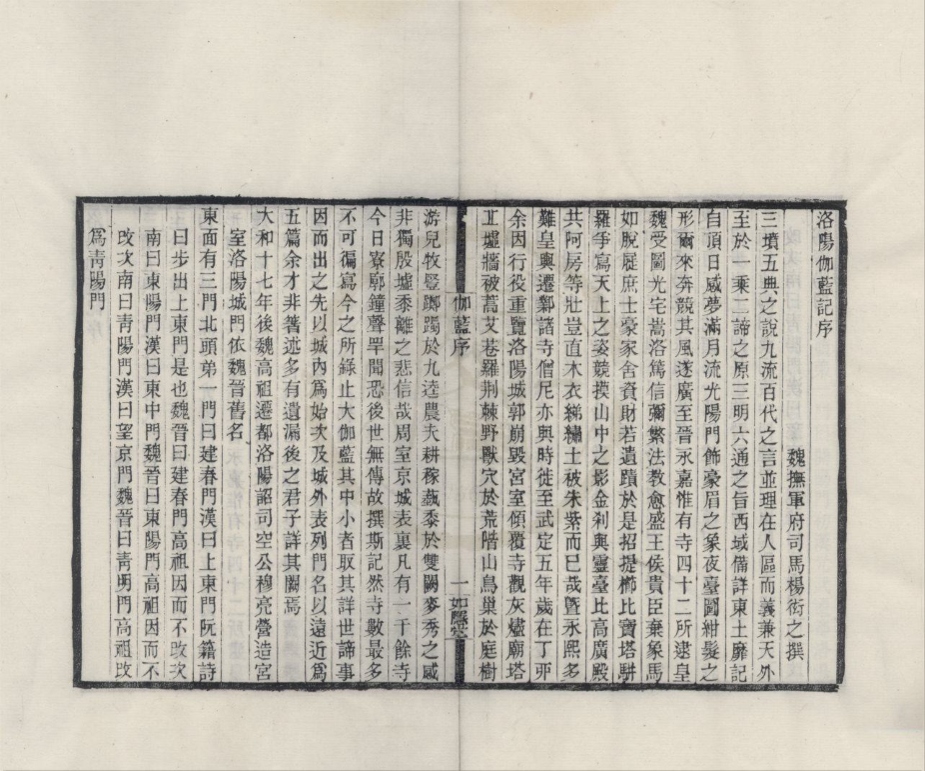 洛陽伽藍記序
魏撫軍府司馬楊衒之撰
三墳五典之說九流百代之言並理在人區而義兼天外
至於一乘二諦之原三明六通之旨西域備詳東土靡記
自頂日感夢滿月流光陽門飾豪眉之象夜臺圖紺髮之
形爾來奔競其風遂廣至晉永嘉惟有寺四十二所逮皇
魏受圖光宅嵩洛篤信彌繁法教愈盛王侯貴臣棄象馬
如脫屣庶士豪家舍資財若遺蹟於是招提櫛比寶塔駢
羅爭寫天上之姿競摸山中之影金剎與靈臺比高廣殿
共阿房等壯豈直木衣綈繡土被朱紫而已哉暨永熙多
難皇輿遷鄴諸寺僧尼亦與時徙至武定五年歲在丁卯
余因行役重覽洛陽城郭崩毀宮室傾覆寺觀灰燼廟塔
丘墟牆被蒿艾巷羅荆棘野獸穴於荒階山鳥巢於庭樹
伽藍序
一
如隱堂
游兒牧豎躑躅於九逵農夫耕稼蓺黍於雙闕麥秀之感
非獨殷墟黍離之悲信哉周室京城表裏凡有一千餘寺
今日寮廓鐘聲罕聞恐後世無傳故撰斯記然寺數最多
不可徧寫今之所錄止大伽藍其中小者取其詳世諦事
因而出之先以城內為始次及城外表列門名以遠近為
五篇余才非著述多有遺漏後之君子詳其闕焉
大和十七年後魏高祖遷都洛陽詔司空公穆亮營造宮
室洛陽城門依魏晉舊名
東面有三門北頭弟一門曰建春門漢曰上東門阮籍詩
曰步出上東門是也魏晉曰建春門高祖因而不改次
南曰東陽門漢曰東中門魏晉曰東陽門高祖因而不
改次南曰青陽門漢曰望京門魏晉曰青明門高祖改
為青陽門